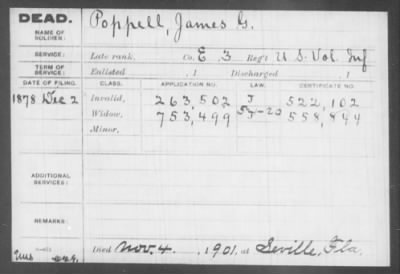 DEAD.
NAME OF SOLDIER:
Poppell, James G.
SERVICE:
Late rank, Co. E 3 Reg't U S. Vol. Inf
TERM OF SERVICE:
Enlisted , 1 Discharged , 1
DATE OF FILING. CLASS. APPLICATION NO. LAW. CERTIFICATE NO.
1878 Dec 2 Invalid, 263,502 J 522,102
Widow, 753,499 558,844
Minor,
ADDITIONAL SERVICES:
REMARKS:
Died Nov. 4, 1901, at Seville, Fla.